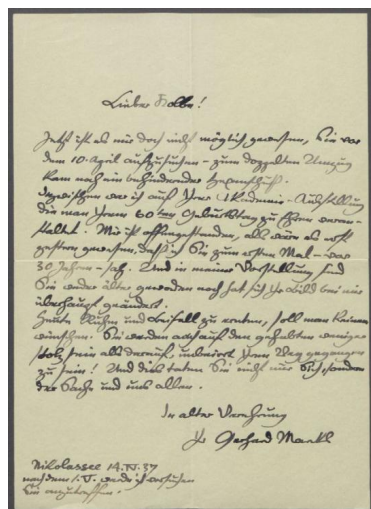 Lieber Kolbe!
Jetzt ist es mir doch nicht möglich gewesen, Sie vor
dem 10. April aufzusuchen – zum doppelten Umzug
kam noch ein behindernder
Inzwischen war ich auf Ihrer Akademie-Ausstellung
die man Ihrem 60ten Geburtstag zu Ehren veran-
staltet. Mir ist offengestanden, als wäre es erst
gestern gewesen, daß ich Sie zum ersten Mal – vor
30 Jahren – sah. Und in meiner Vorstellung sind
Sie weder älter geworden noch hat sich Ihr Bild bei mir
überhaupt geändert.
Heute Ruhm und Beifall zu ernten, soll man keinem
wünschen. Sie werden auch auf den gehabten weniger
stolz sein als darauf, unbeirrt Ihren Weg gegangen
zu sein! Und dies taten Sie nicht nur sich, sondern
der Sache und uns allen.
In alter Verehrung
Ihr Gerhard Marcks
Nikolassee 14.IV.37
nach dem 1.V. werde ich versuchen
Sie anzutreffen.